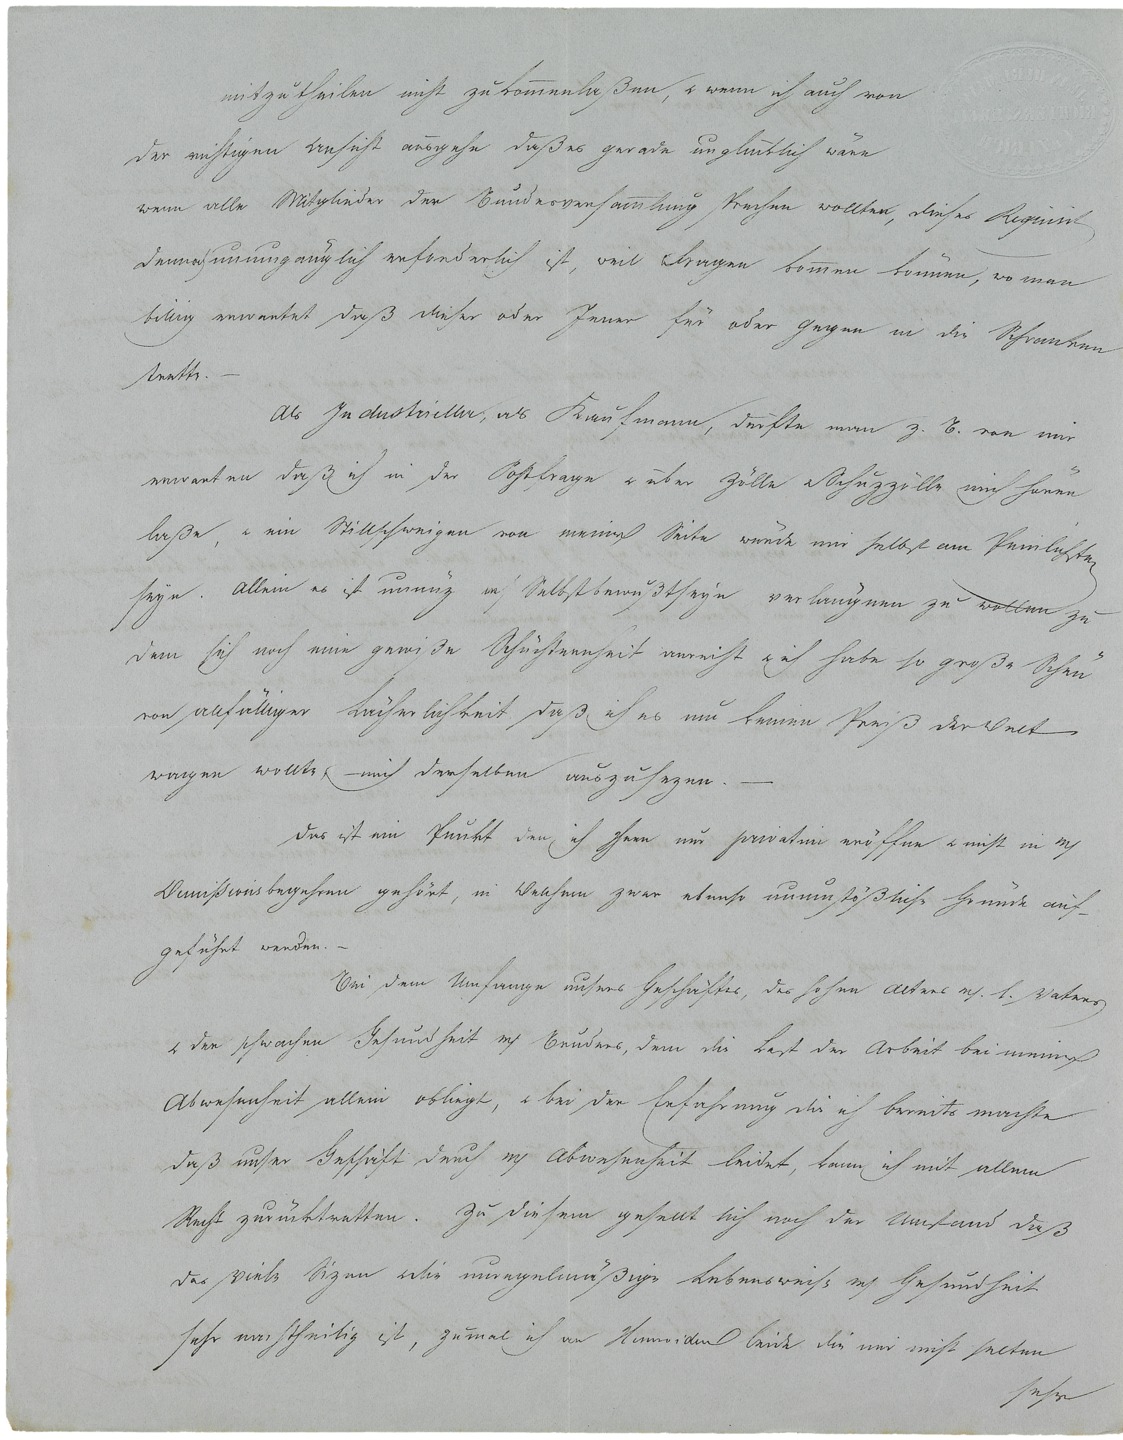 mitzutheilen nicht zukom̅enlaßen, & wenn ich auch von
der richtigen Ansicht ausgehe daß es gerade unglücklich wäre
wenn alle Mitglieder der Bundesversam̅lung sprechen wollten, dieses Requisit
dennoch unumgänglich erforderlich ist, weil Fragen kom̅en können, wo man
billig erwartet daß dieser oder Jener für oder gegen in die Schranken
trette. –
Als Industrieller, als Kaufmann, dürfte man z. B. von mir
erwarten daß ich in der Postfrage & über Zölle & Schuzzölle mich hören
laße, & ein Stillschweigen von meiner Seite würde mir selbst am Peinlichsten
seyn. Allein es ist unnüz mß Selbstbewußtseyn verläugnen zu wollen zu
dem sich noch eine gewiße Schüchternheit anreiht & ich habe so große Scheu
von allfälliger Lächerlichkeit daß ich es um keinen Preiß der Welt
wagen wollte, mich derselben auszusezen. —
Das ist ein Punkt den ich Ihnen nur privatim eröffne & nicht in mß
Demißionsbegehren gehört, in Welchem zwar ebenso unumstößliche Gründe auf-
geführt werden. –
Bei dem Umfange unsers Geschäftes, des hohen Alters ms. l. Vaters
& der schwachen Gesundheit ms Bruders, dem die Last der Arbeit bei meiner
Abwesenheit allein obliegt, & bei der Erfahrung die ich bereits machte
daß unser Geschäft durch mr Abwesenheit leidet, kann ich mit allem
Recht zurücktretten. Zu diesem gesellt sich noch der Umstand daß
das viele Sizen & die unregelmäßige Lebensweise mr Gesundheit
sehr nachtheilig ist, zumal ich an Hämoiden leide die mir nicht selten
sehr